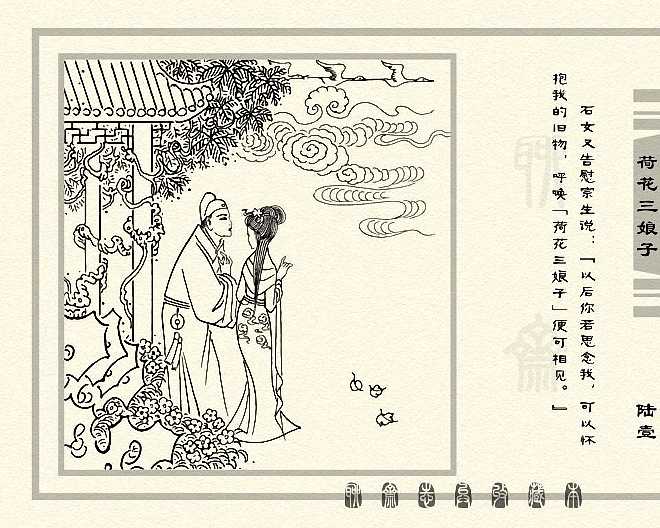 荷花三娘子
陆壹
石女又告慰宗生说：「以后你若思念我，可以怀
抱我的旧物，呼唤「荷花三娘子」便可相见。」
聊斋志异收藏本